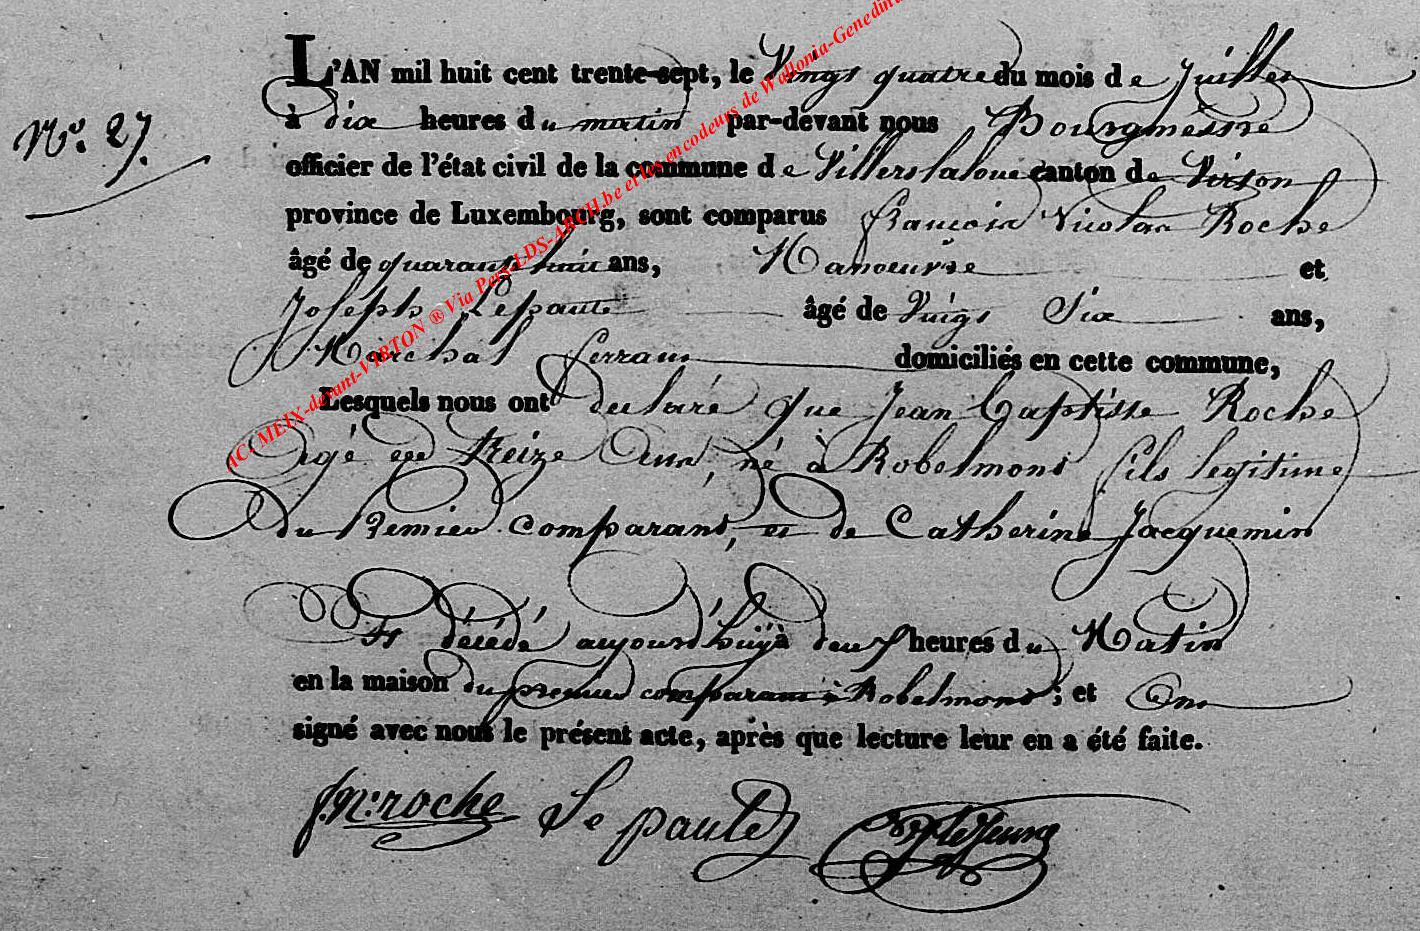 L'AN mil huit cent trente-sept, le Vingt quatre du mois de Juillet
N.º 27. à dix heures du matin par-devant nous Bourgmestre
officier de l'état civil de la commune de Villerslaloue canton de Virton
province de Luxembourg, sont comparus françois Nicolas Roche
âgé de quarante huit ans, Manoeuvre et
Joseph Lepaute âgé de Vingt Six ans,
Marchal ferrant domiciliés en cette commune,
Lesquels nous ont declaré que Jean Baptiste Roche
Agé de treize Ans, né à Robelmont fils legitime
du Premier comparant, et de Catherine Jacquemin
Et décédé aujourd'huÿ à deux heures du Matin
en la maison du premier comparant à Robelmont; et Ont
signé avec nous le présent acte, après que lecture leur en a été faite.
f.N. roche Le paute Lejeune
AC: MEIX-devant-VIRTON ® Via Pers-LDS-ARCH.be et les encodeurs de Wallonia-Genedinu